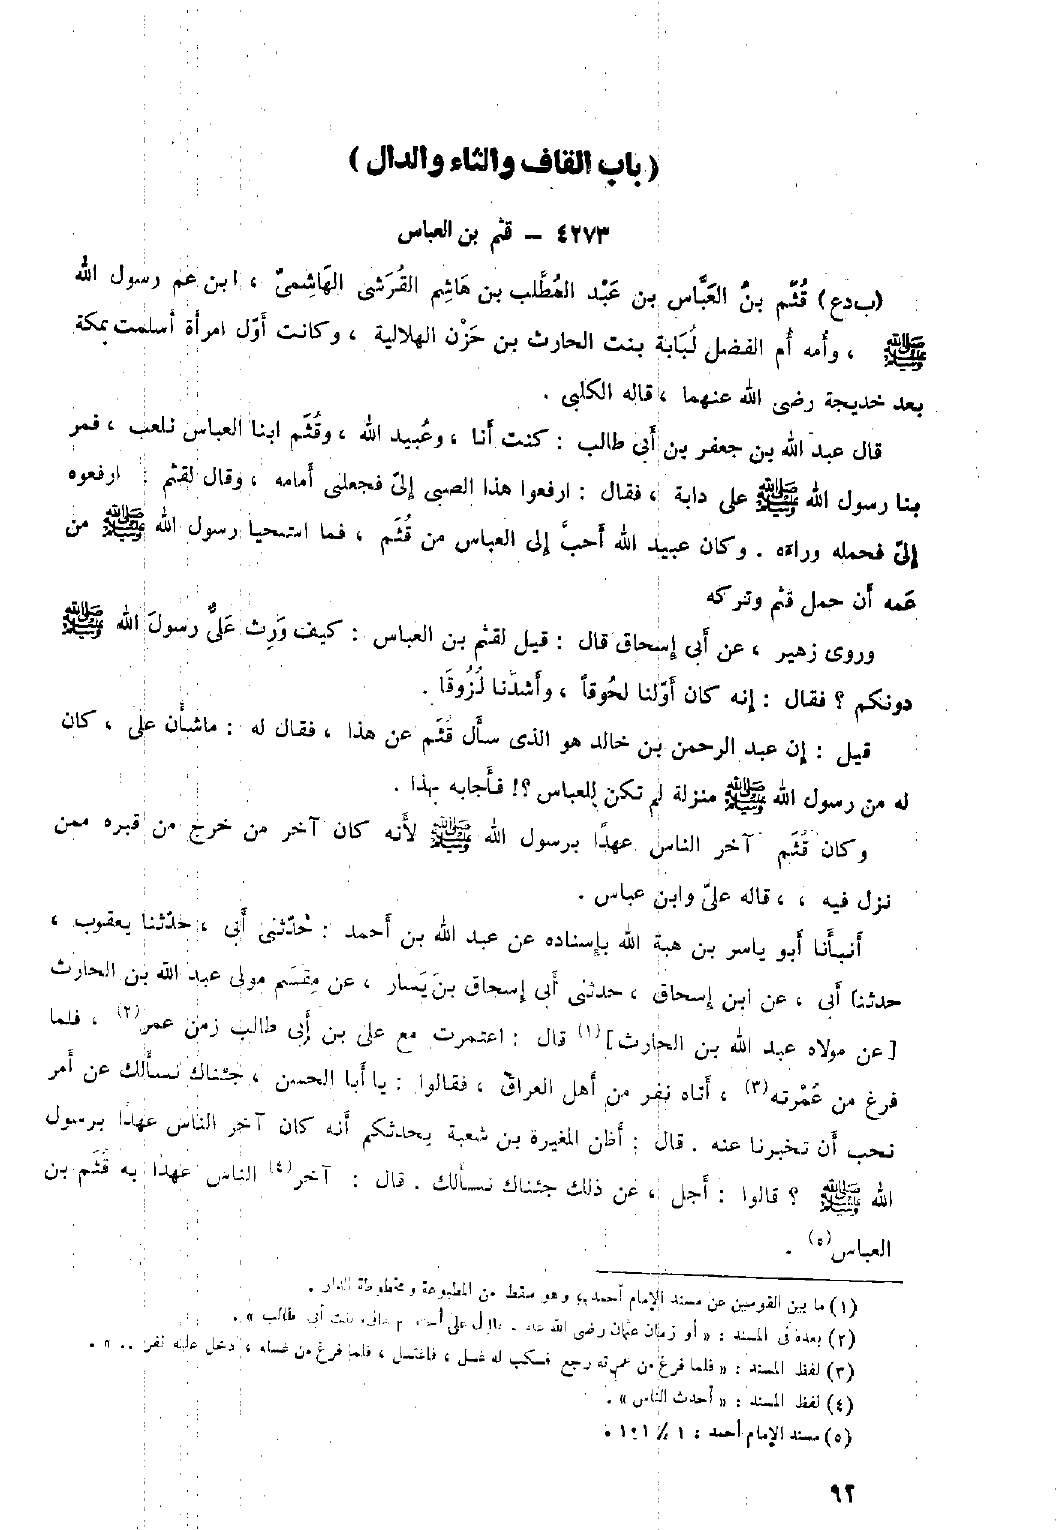 ( باب القاف والثاء والدال )
٤٢٧٣ – قثم بن العباس
(ب د ع) قُثَم بنُ العَبَّاس بن عَبْد المُطَّلب بن هَاشِم القُرَشى الهَاشِمىّ ، ابن عم رسول الله
ﷺ ، وأُمه أُم الفضل لُبَابة بنت الحارث بن حَزْن الهلالية ، وكانت أوّل امرأة أسلمت بمكة
بعد خديجة رضى الله عنهما ، قاله الكلبى .
قال عبد الله بن جعفر بن أَبى طالب : كنت أنا ، وعُبيد الله ، وقُثَم ابنا العباس نلعب ، فمر
بنا رسول الله ﷺ على دابة ، فقال : ارفعوا هذا الصبى إلىّ فجعلنى أمامه ، وقال لقثم : ارفعوه
إلىّ فحمله وراءه . وكان عبيد الله أحبَّ إلى العباس من قُثَم ، فما استحيا رسول الله ﷺ من
عَمه أن حمل قثم وتركه
وروى زهير ، عن أَبى إسحاق قال : قيل لقثم بن العباس : كيف وَرِث عَلىٌّ رسولَ الله ﷺ
دونكم ؟ فقال : إنه كان أوّلنا لحُوقاً ، وأشدّنا لُزُوقَا .
قيل : إن عبد الرحمن بن خالد هو الذى سأَل قُثَم عن هذا ، فقال له : ماشأْن على ، كان
له من رسول الله ﷺ منزلة لم تكن للعباس ؟! فأَجابه بهذا .
وكان قُثَم آخر الناس عهدًا برسول الله ﷺ لأَنه كان آخر من خرج من قبره ممن
نزل فيه ، ، قاله علىّ وابن عباس .
أَنبأَنا أَبو ياسر بن هبة الله بإِسناده عن عبد الله بن أَحمد : حْدّثنى أَبى ، حدّثنا يعقوب ،
حدثنا أَبى ، عن ابن إسحاق ، حدثنى أَبى إسحاق بن يَسار ، عن مِقسَم مولى عبد الله بن الحارث
[ عن مولاه عبد الله بن الحارث ](١) قال : اعتمرت مع على بن أبى طالب زمن عمر(٢) ، فلما
فرغ من عُمْرته(٣) ، أتاه نفر من أهل العراق ، فقالوا : يا أبا الحسن ، جئناك نسأَلك عن أمر
نحب أن تخبرنا عنه . قال : أظن المغيرة بن شعبة يحدثكم أنه كان آخر الناس عهدًا برسول
الله ﷺ ؟ قالوا : أجل ، عن ذلك جئناك نسأَلك . قال : آخر(٤) الناس عهدا به قُثَم بن
العباس(٥) .
(١) ما بين القوسين عن مسند الإمام أحمد ، وهو سقط من المطبوعة ومخطوطة الدار .
(٢) بعده فى المسند : « أو زمان عثمان رضى الله عنه . على بنت أبى طالب » .
(٣) لفظ المسند : « فلما فرغ من عمرته رجع فسكب له غسل ، فاغتسل ، فلما فرغ من غسله ، دخل عليه نفر .. » .
(٤) لفظ المسند : « أحدث الناس » .
(٥) مسند الإمام أحمد : ١ / ١٠١ .
٩٢